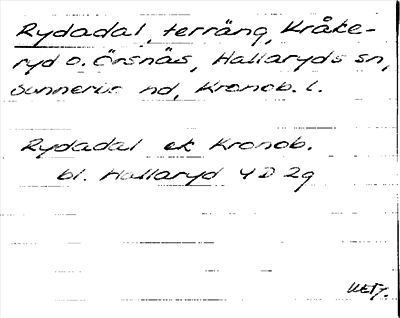 Rydadal, terräng, Kråke-
ryd o. Örsnäs, Hallaryds sn,
Sunnerbo hd, Kronob. l.
Rydadal ek Kronob.
bl. Hallaryd 4D 2g